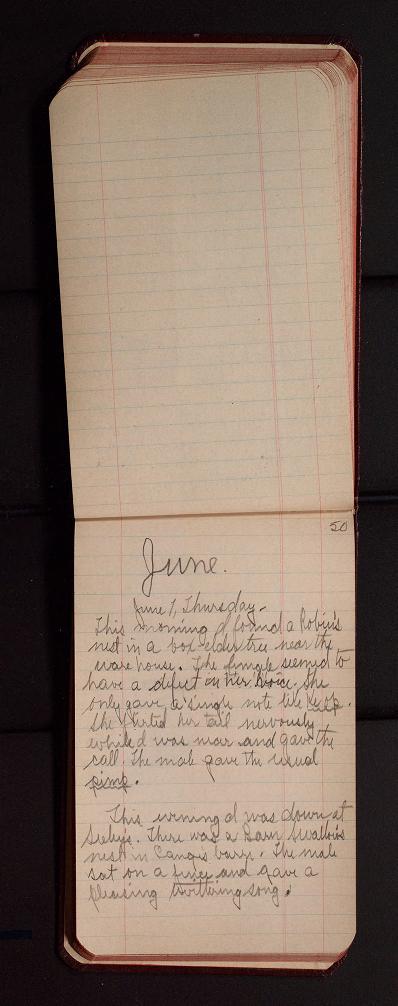 50
June.
June 1, Thursday-
This morning I found a Robin's
nest in a box-elder tree near the
ware house. The female seemed to
have a defect in her voice. She
only gave a single note like
She flirted her tail nervously
while I was near and gave the
call. The male gave the usual
pimp.
This evening I was down at
Seeleys. There was a Barn Swallow's
nest in barn. The male
sat on a and gave a
pleasing twittering song.